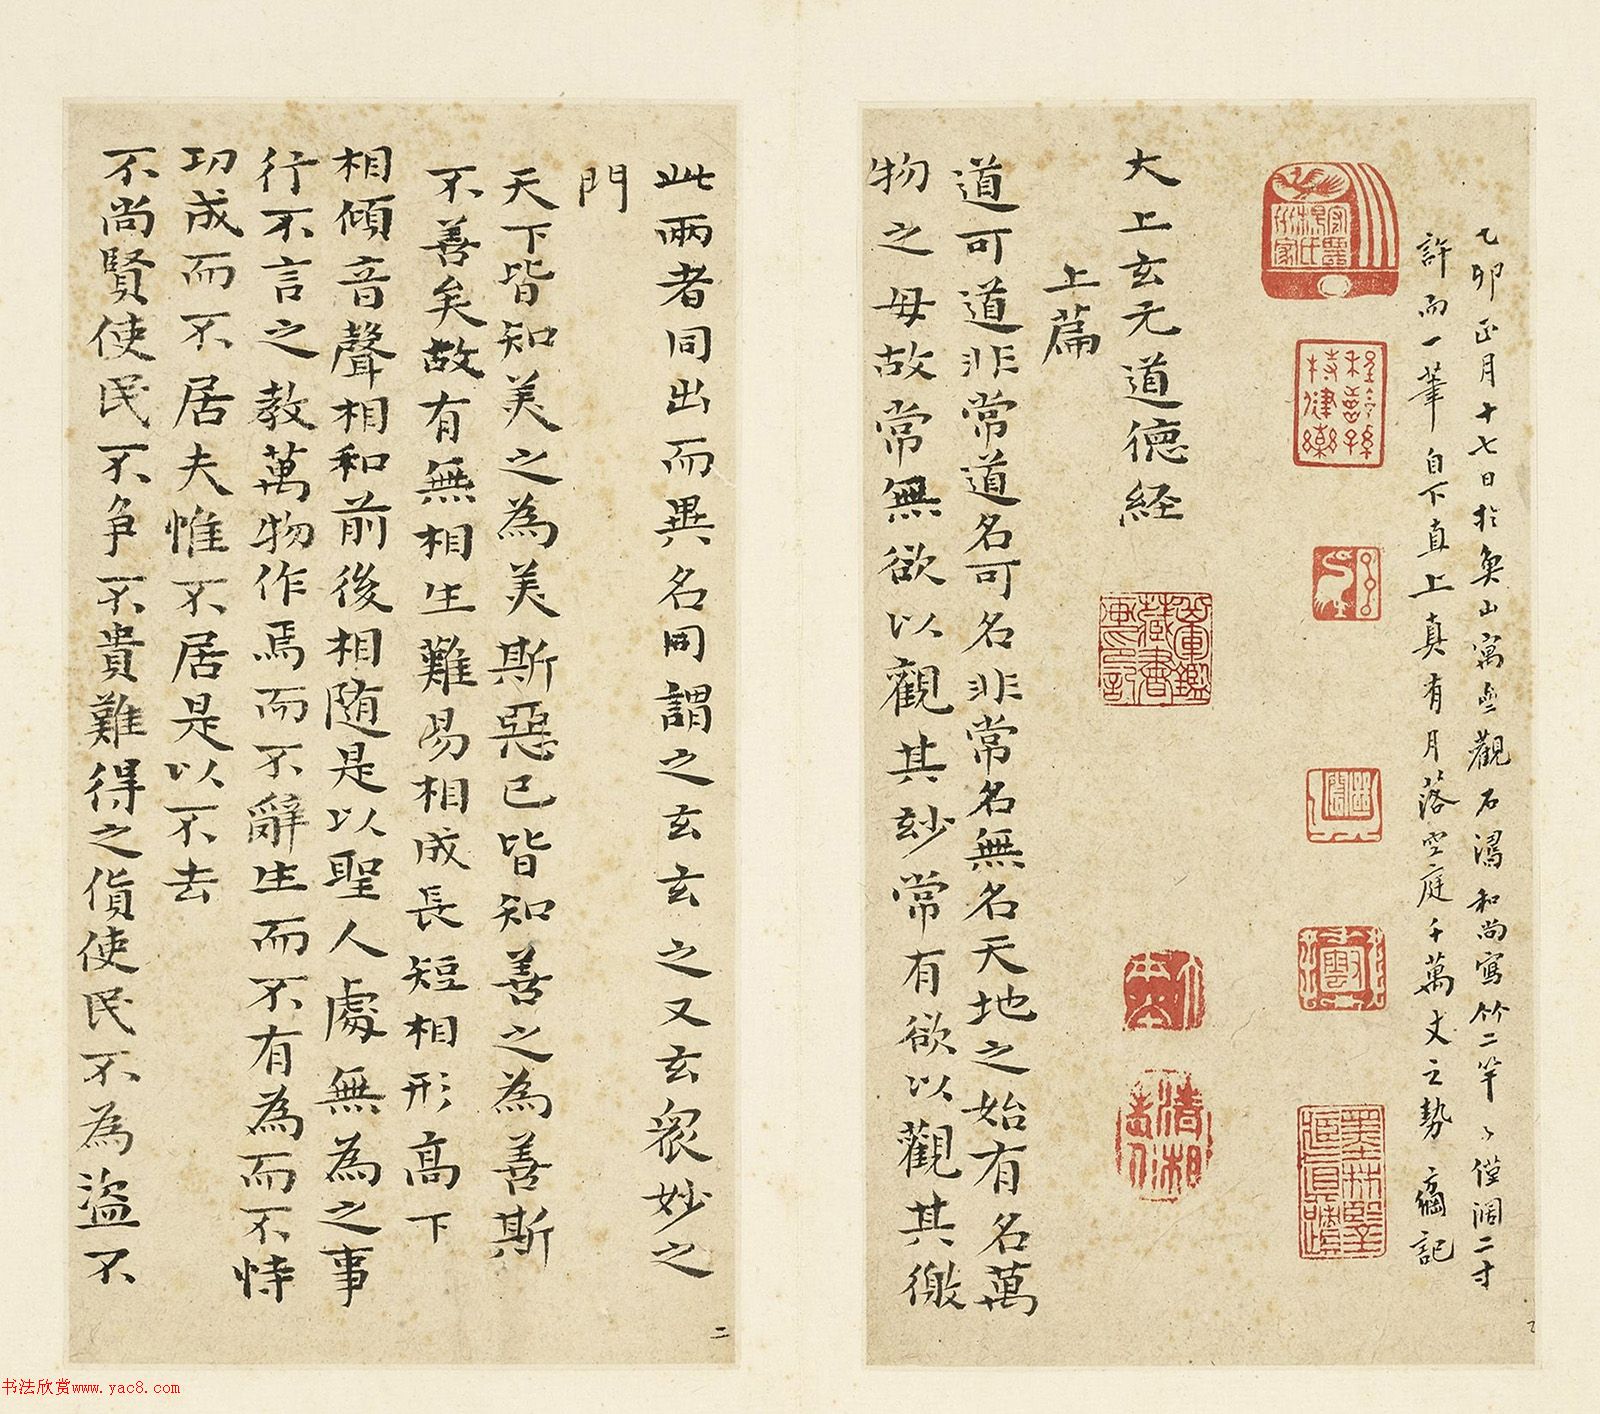 乙卯正月十七日於奐山寓齋觀石濤和尚寫竹二竿〻僅濶二寸
許而一筆自下直上真有月落空庭千萬丈之勢 記
大上玄元道德経
上篇
道可道非常道名可名非常名無名天地之始有名萬
物之母故常無欲以觀其玅常有欲以觀其徼
此兩者同出而異名同謂之玄玄之又玄衆妙之
門
天下皆知美之為美斯惡已皆知善之為善斯
不善矣故有無相生難易相成長短相形高下
相傾音聲相和前後相随是以聖人處無為之事
行不言之教萬物作焉而不辭生而不有為而不恃
功成而不居夫惟不居是以不去
不尚賢使民不争不貴難得之貨使民不為盜不
二
书法欣赏www.yac8.com